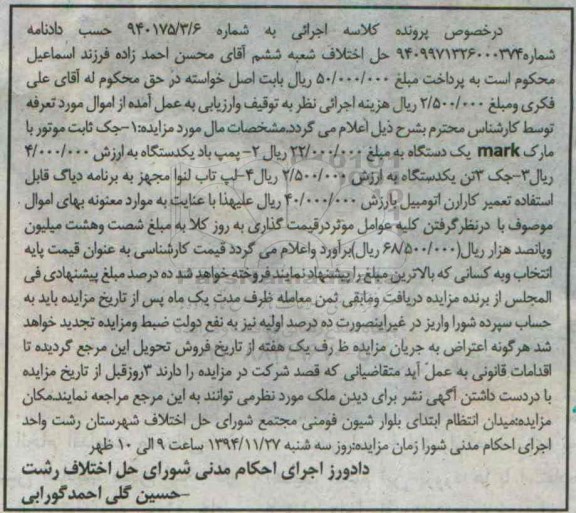 درخصوص پرونده کلاسه اجرائی به شماره ۹۴۰۱۷۵/۳/۶ حسب دادنامه
شماره۹۴۰۹۹۷۱۳۲۶۰۰۰۳۷۴ حل اختلاف شعبه ششم آقای محسن احمد زاده فرزند اسماعیل
محکوم است به پرداخت مبلغ ۵۰/۰۰۰/۰۰۰ ریال بابت اصل خواسته در حق محکوم له آقای علی
فکری ومبلغ ۲/۵۰۰/۰۰۰ ریال هزینه اجرائی نظر به توقیف وارزیابی به عمل آمده از اموال مورد تعرفه
توسط کارشناس محترم بشرح ذیل اعلام می گردد.مشخصات مال مورد مزایده:۱-جک ثابت موتور با
مارک mark یک دستگاه به مبلغ ۲۲/۰۰۰/۰۰۰ ریال ۲- پمپ باد یکدستگاه به ارزش ۴/۰۰۰/۰۰۰
ریال۳-جک ۳تن یکدستگاه به ارزش ۲/۵۰۰/۰۰۰ ریال۴-لپ تاب لنوا مجهز به برنامه دیاگ قابل
استفاده تعمیر کارارن اتومبیل بارزش ۴۰/۰۰۰/۰۰۰ ریال علیهذا با عنایت به موارد معنونه بهای اموال
موصوف با درنظرگرفتن کلیه عوامل موثردرقیمت گذاری به روز کلا به مبلغ شصت وهشت میلیون
وپانصد هزار ریال(۶۸/۵۰۰/۰۰۰ ریال)برآورد واعلام می گردد قیمت کارشناسی به عنوان قیمت پایه
انتخاب وبه کسانی که بالاترین مبلغ راپیشنهادنمایند فروخته خواهد شد ده درصد مبلغ پیشنهادی فی
المجلس از برنده مزایده دریافت ومابقی ثمن معامله ظرف مدت یک ماه پس از تاریخ مزایده باید به
حساب سپرده شورا واریز در غیراینصورت ده درصد اولیه نیز به نفع دولت ضبط ومزایده تجدید خواهد
شد هرگونه اعتراض به جریان مزایده ظ رف یک هفته از تاریخ فروش تحویل این مرجع گردیده تا
اقدامات قانونی به عمل آید متقاضیانی که قصد شرکت در مزایده را دارند ۳روزقبل از تاریخ مزایده
با دردست داشتن آگهی نشر برای دیدن ملک مورد نظرمی توانند به این مرجع مراجعه نمایند.مکان
مزایده:میدان انتظام ابتدای بلوار شیون فومنی مجتمع شورای حل اختلاف شهرستان رشت واحد
اجرای احکام مدنی شورا زمان مزایده:روز سه شنبه ۱۳۹۴/۱۱/۲۷ ساعت ۹ الی ۱۰ ظهر
دادورز اجرای احکام مدنی شورای حل اختلاف رشت
-حسین گلی احمدگورابی